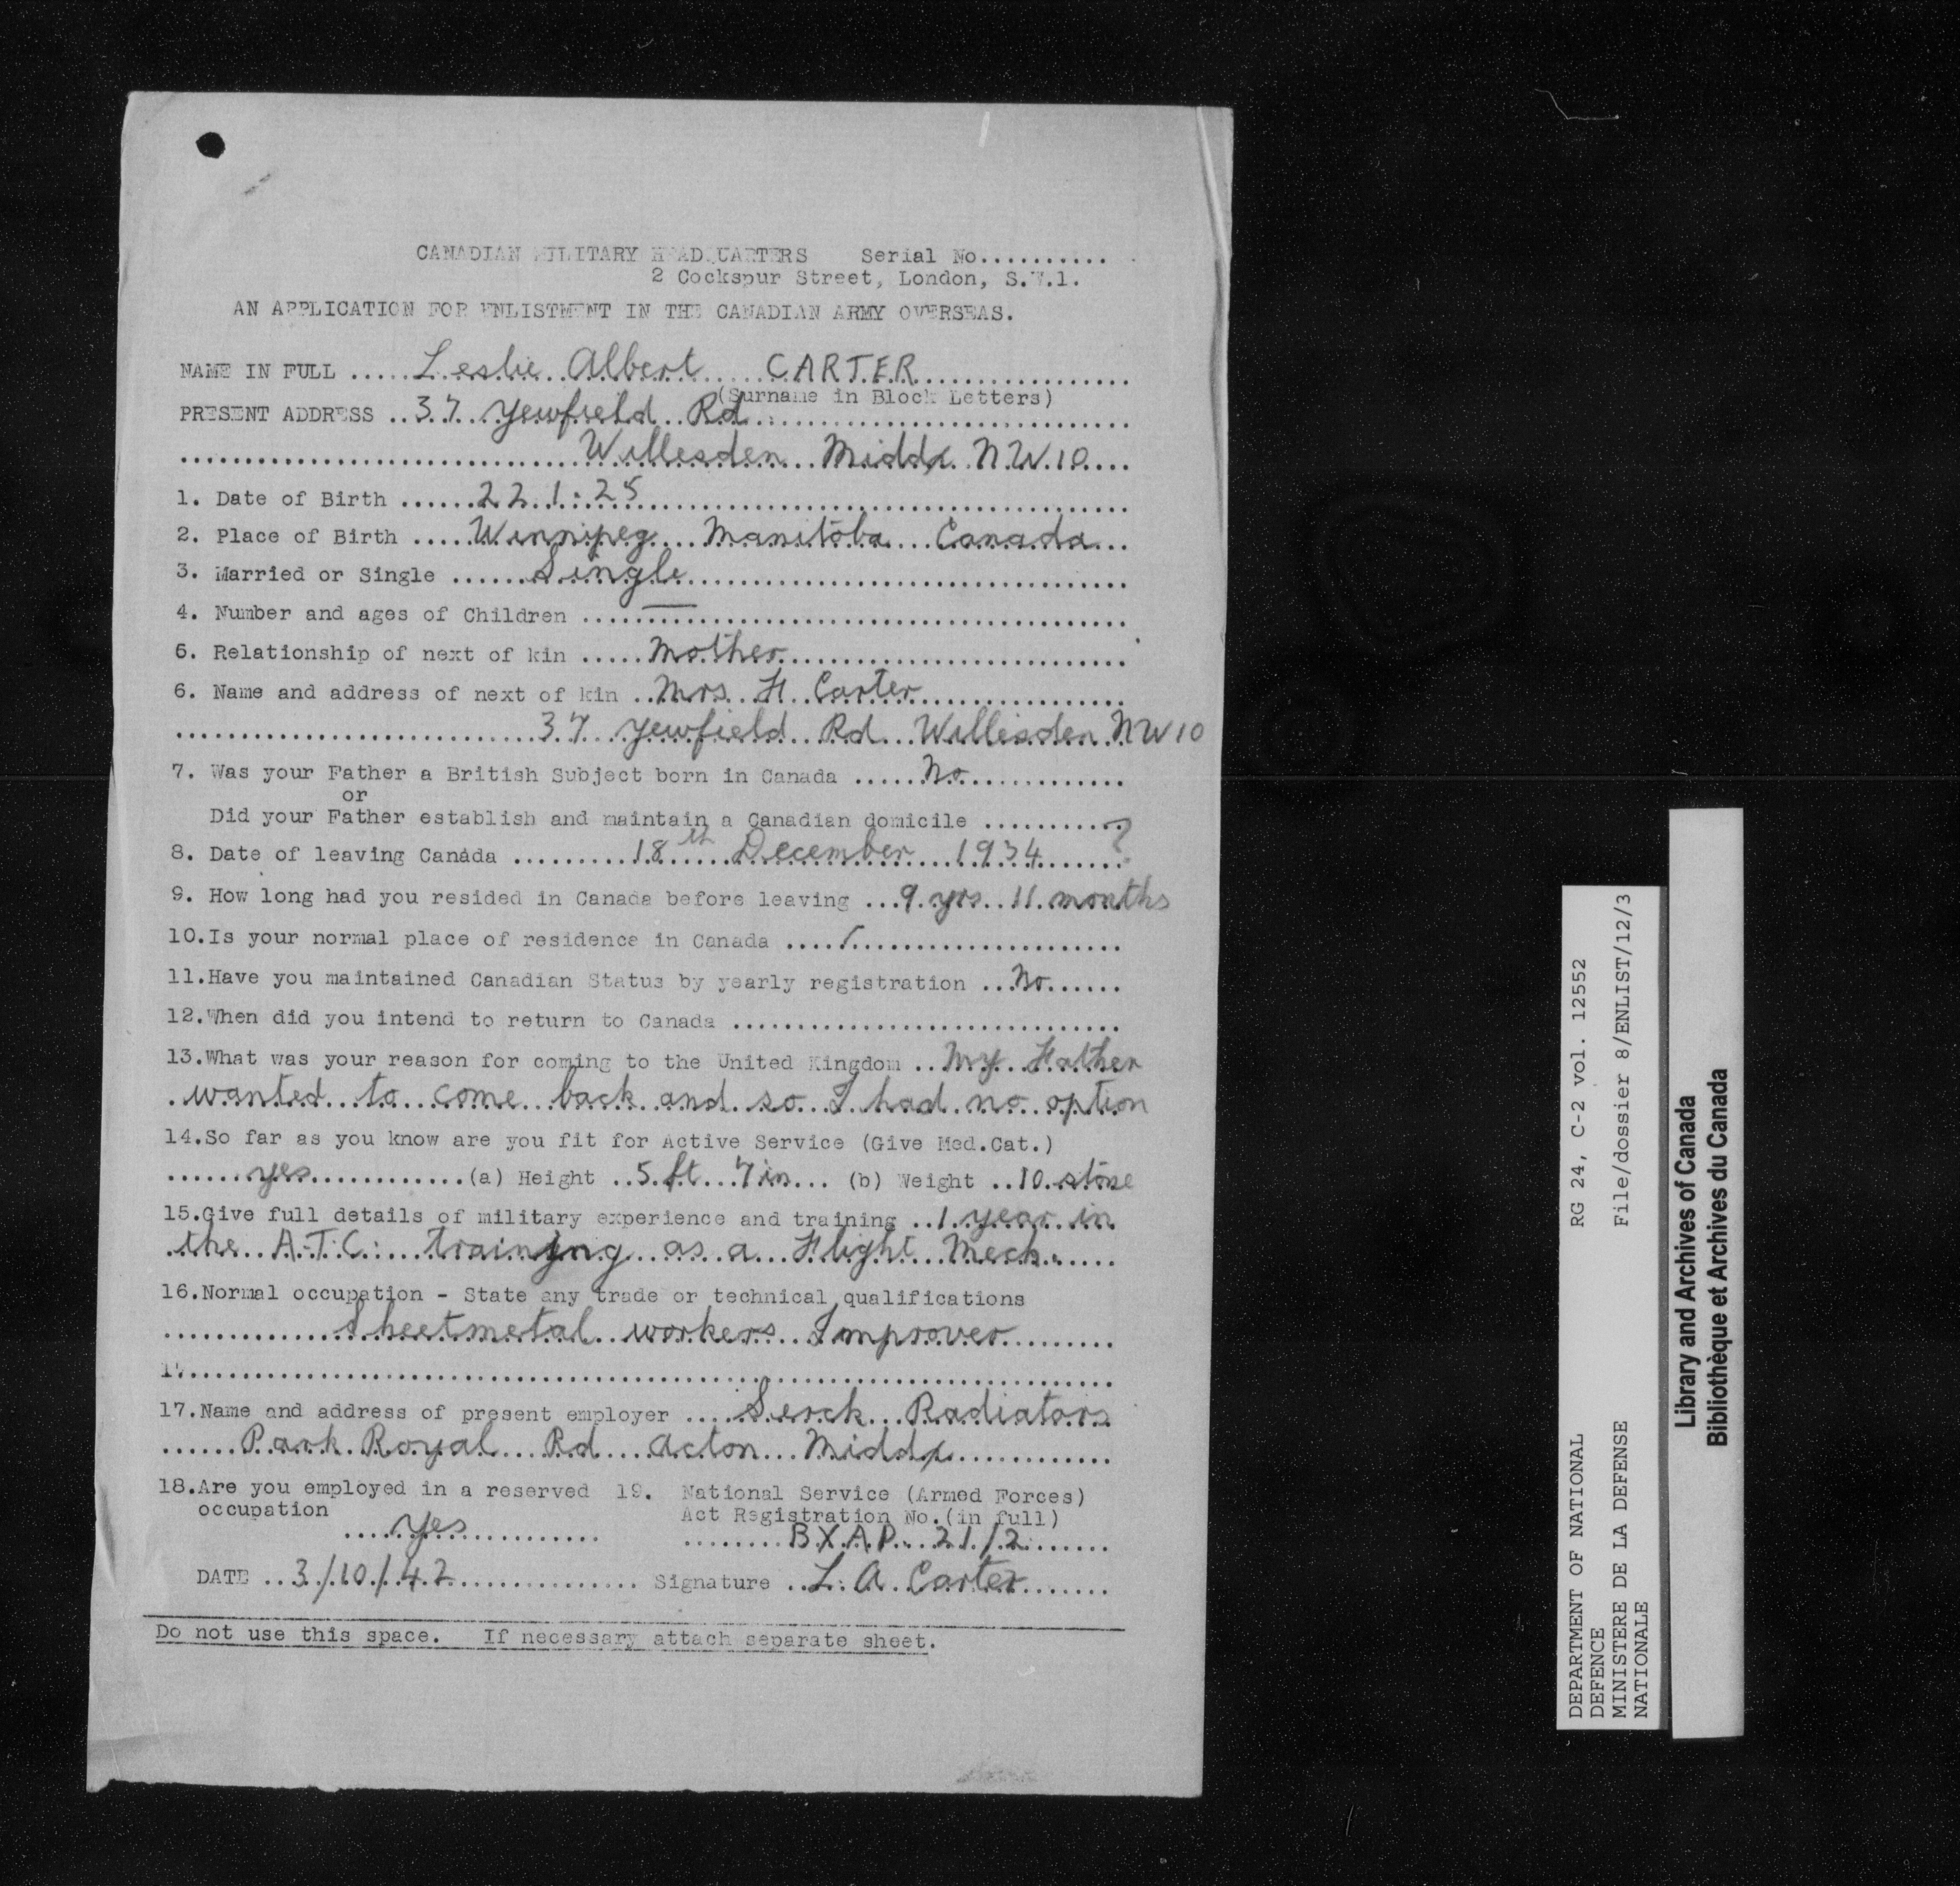 CANADIAN MILITARY HEADQUARTERS Serial No...........
2 Cockspur Street, London, S.W.1.
AN APPLICATION FOR ENLISTMENT IN THE CANADIAN ARMY OVERSEAS.
NAME IN FULL ..... Leslie Albert CARTER
(Surname in Block Letters)
PRESENT ADDRESS .. 37 Yewfield Rd
Willesden Middx N.W.10
1. Date of Birth ...... 22.1:25
2. Place of Birth ..... Winnipeg Manitoba Canada
3. Married or Single ...... Single
4. Number and ages of Children ..... —
6. Relationship of next of kin ..... Mother
6. Name and address of next of kin .. Mrs. H. Carter
37 Yewfield Rd Willesden NW10
7. Was your Father a British Subject born in Canada ..... No
or
Did your Father establish and maintain a Canadian domicile .......... ?
8. Date of leaving Canada ......... 18th December 1934
9. How long had you resided in Canada before leaving ... 9 yrs 11 months
10.Is your normal place of residence in Canada .....
11.Have you maintained Canadian Status by yearly registration ... No
12.When did you intend to return to Canada ..............................
13.What was your reason for coming to the United Kingdom .. My Father
wanted to come back and so I had no option
14.So far as you know are you fit for Active Service (Give Med.Cat.)
yes (a) Height .. 5 ft 7 in ... (b) Weight .. 10 stone
15.Give full details of military experience and training .. 1 year in
the A.T.C: training as a Flight Mech.
16.Normal occupation - State any trade or technical qualifications
Sheetmetal workers Improver
17.
17.Name and address of present employer .... Serck Radiators
Park Royal Rd Acton Middx
18.Are you employed in a reserved 19. National Service (Armed Forces)
occupation Act Registration No.(in full)
yes BXAP 21/2
DATE .. 3/10/42 Signature .. L. A. Carter
Do not use this space. If necessary attach separate sheet.
DEPARTMENT OF NATIONAL RG 24, C-2 vol. 12552
DEFENCE
MINISTERE DE LA DEFENSE File/dossier 8/ENLIST/12/3
NATIONALE
Library and Archives of Canada
Bibliothèque et Archives du Canada